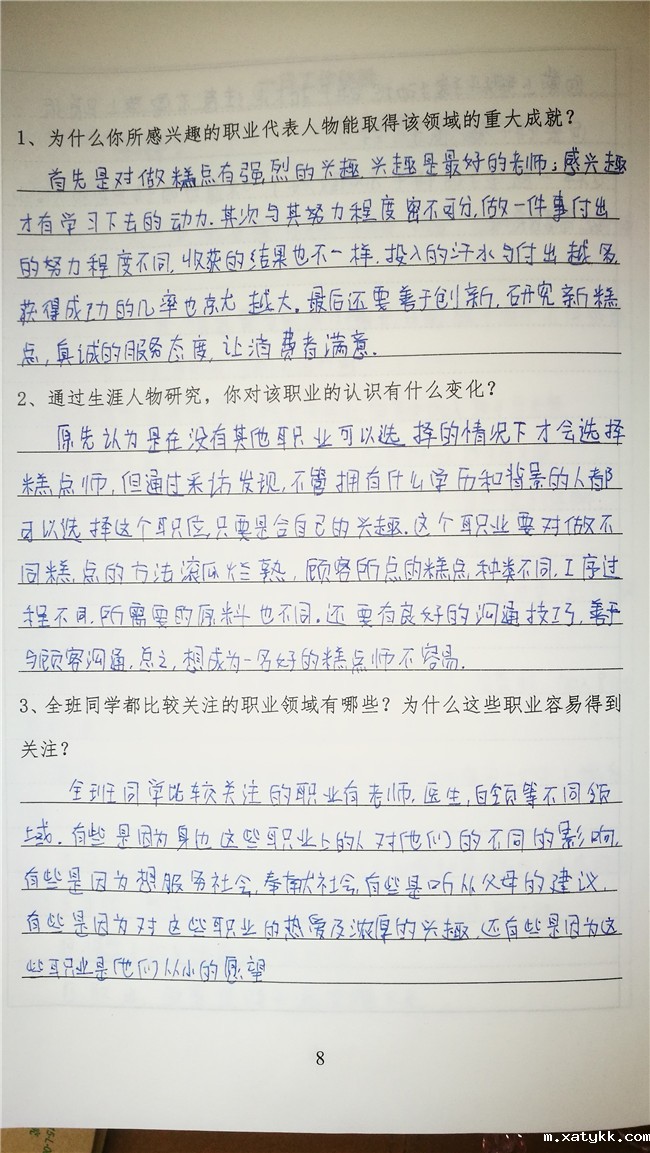 1、为什么你所感兴趣的职业代表人物能取得该领域的重大成就？
首先是对做糕点有强烈的兴趣,兴趣是最好的老师；感兴趣
才有学习下去的动力.其次与其努力程度密不可分,做一件事付出
的努力程度不同,收获的结果也不一样.投入的汗水与付出越多,
获得成功的几率也就越大。最后还要善于创新,研究新糕
点,真诚的服务态度,让消费者满意.
2、通过生涯人物研究，你对该职业的认识有什么变化？
原先认为是在没有其他职业可以选择的情况下才会选择
糕点师,但通过采访发现,不管拥有什么学历和背景的人都
可以选择这个职位,只要是合自己的兴趣.这个职业要对做不
同糕点的方法滚瓜烂熟,顾客所点的糕点种类不同,工序过
程不同,所需要的原料也不同.还要有良好的沟通技巧,善于
与顾客沟通.总之,想成为一名好的糕点师不容易.
3、全班同学都比较关注的职业领域有哪些？为什么这些职业容易得到
关注？
全班同学比较关注的职业有老师,医生,白领等不同领
域.有些是因为身边这些职业上的人对他们的不同的影响,
有些是因为想服务社会,奉献社会,有些是听从父母的建议.
有些是因为对这些职业的热爱及浓厚的兴趣,还有些是因为这
些职业是他们从小的愿望
8
m.xatykk.com